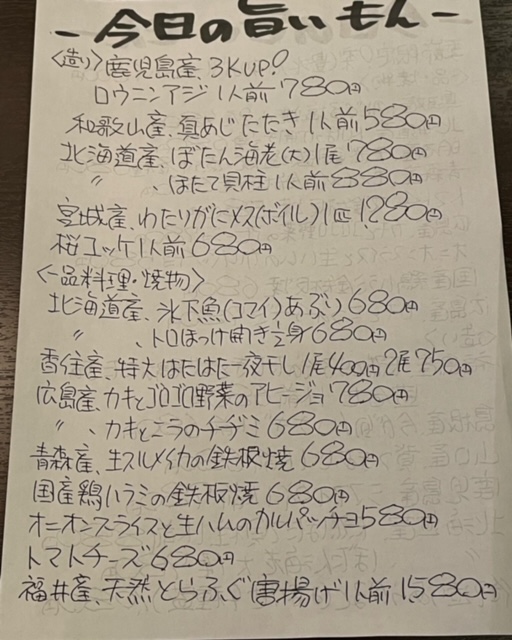 -今日の旨いもん-
〈造り〉鹿児島産、3KUP!
ロウニンアジ1人前780円
和歌山産、真あじたたき1人前580円
北海道産、ぼたん海老(大)1尾780円
〃、ほたて貝柱1人前880円
宮城産、わたりがにメス(ボイル)1匹1280円
桜ユッケ1人前680円
〈一品料理・焼物〉
北海道産、氷下魚(コマイ)あぶり680円
〃、トロほっけ開き半身680円
香住産、特大はたはた一夜干し1尾400円2尾750円
広島産、カキとゴロゴロ野菜のアヒージョ780円
〃、カキとニラのチヂミ680円
青森産、生スルメイカの鉄板焼680円
国産鶏ハラミの鉄板焼680円
オニオンスライスと生ハムのカルパッチョ580円
トマトチーズ680円
福井産、天然とらふぐ唐揚げ1人前1,580円